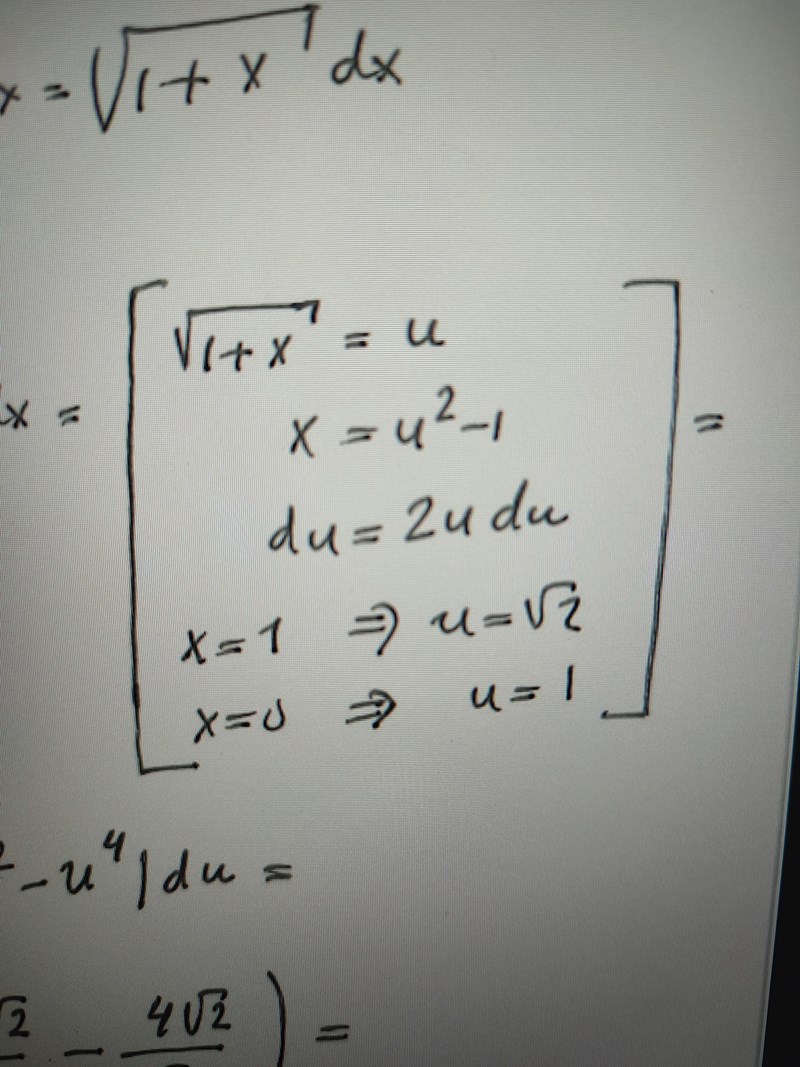 x = √1+x dx
√1+x = u
x = u²-1
x =
=
du = 2u du
x=1 ⇒ u=√2
x=0 ⇒ u=1
-u⁴)du =
√2 - 4√2 ) =